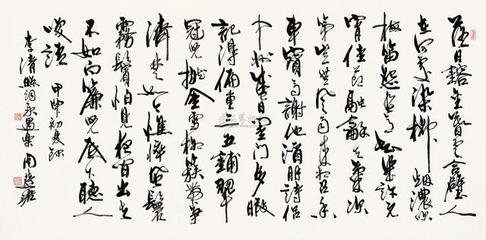 落日鎔金暮雲合璧人
在何處染柳烟濃吹
梅笛怨春意知幾許元
宵佳節融龢天氣次
第豈無風雨來相召香
車寶馬謝他酒朋詩侶
中州盛日閨門多暇
記得偏重三五鋪翠
冠兒撚金雪柳簇帶爭
濟楚如今憔悴風鬟
霧鬢怕見夜間出去
不如向簾兒底下聽人
笑語 甲申初夏
李清照詞永遇樂 周